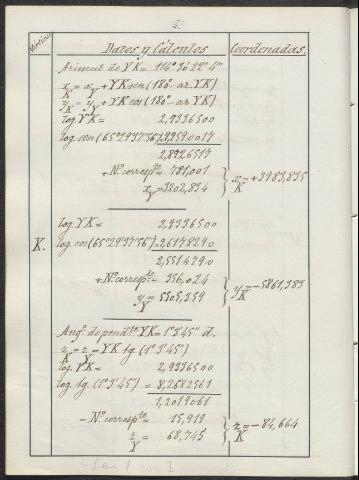 Vértices
Datos y Cálculos
Coordenadas.
Azimut de YK = 114° 30' 22" 4'''
x K = x Y + YK sen (180° - az YK)
y K = y Y + YK cos (180° - az YK)
log. YK = 2,9336500
log. sen (65° 29' 37" 6''') = 9,9590017
2,8926517
+ N.º corresp.te = 781,001
x Y = 3202,834
x K = +3983,835
log. YK = 2,9336500
K.
log. cos (65° 29' 37" 6''') = 9,6178290
2,5514790
+ N.º corresp.te = 356,024
y Y = 5505,359
y K = -5861,383
Ang.º de pend.te YK = 1° 3' 45" d.
z K = z Y - YK tg. (1° 3' 45")
log. YK = 2,9336500
log. tg. (1° 3' 45") = 8,2682561
1,2019061
- N.º corresp.te = 15,919
z Y = 68,745
z K = -84,664